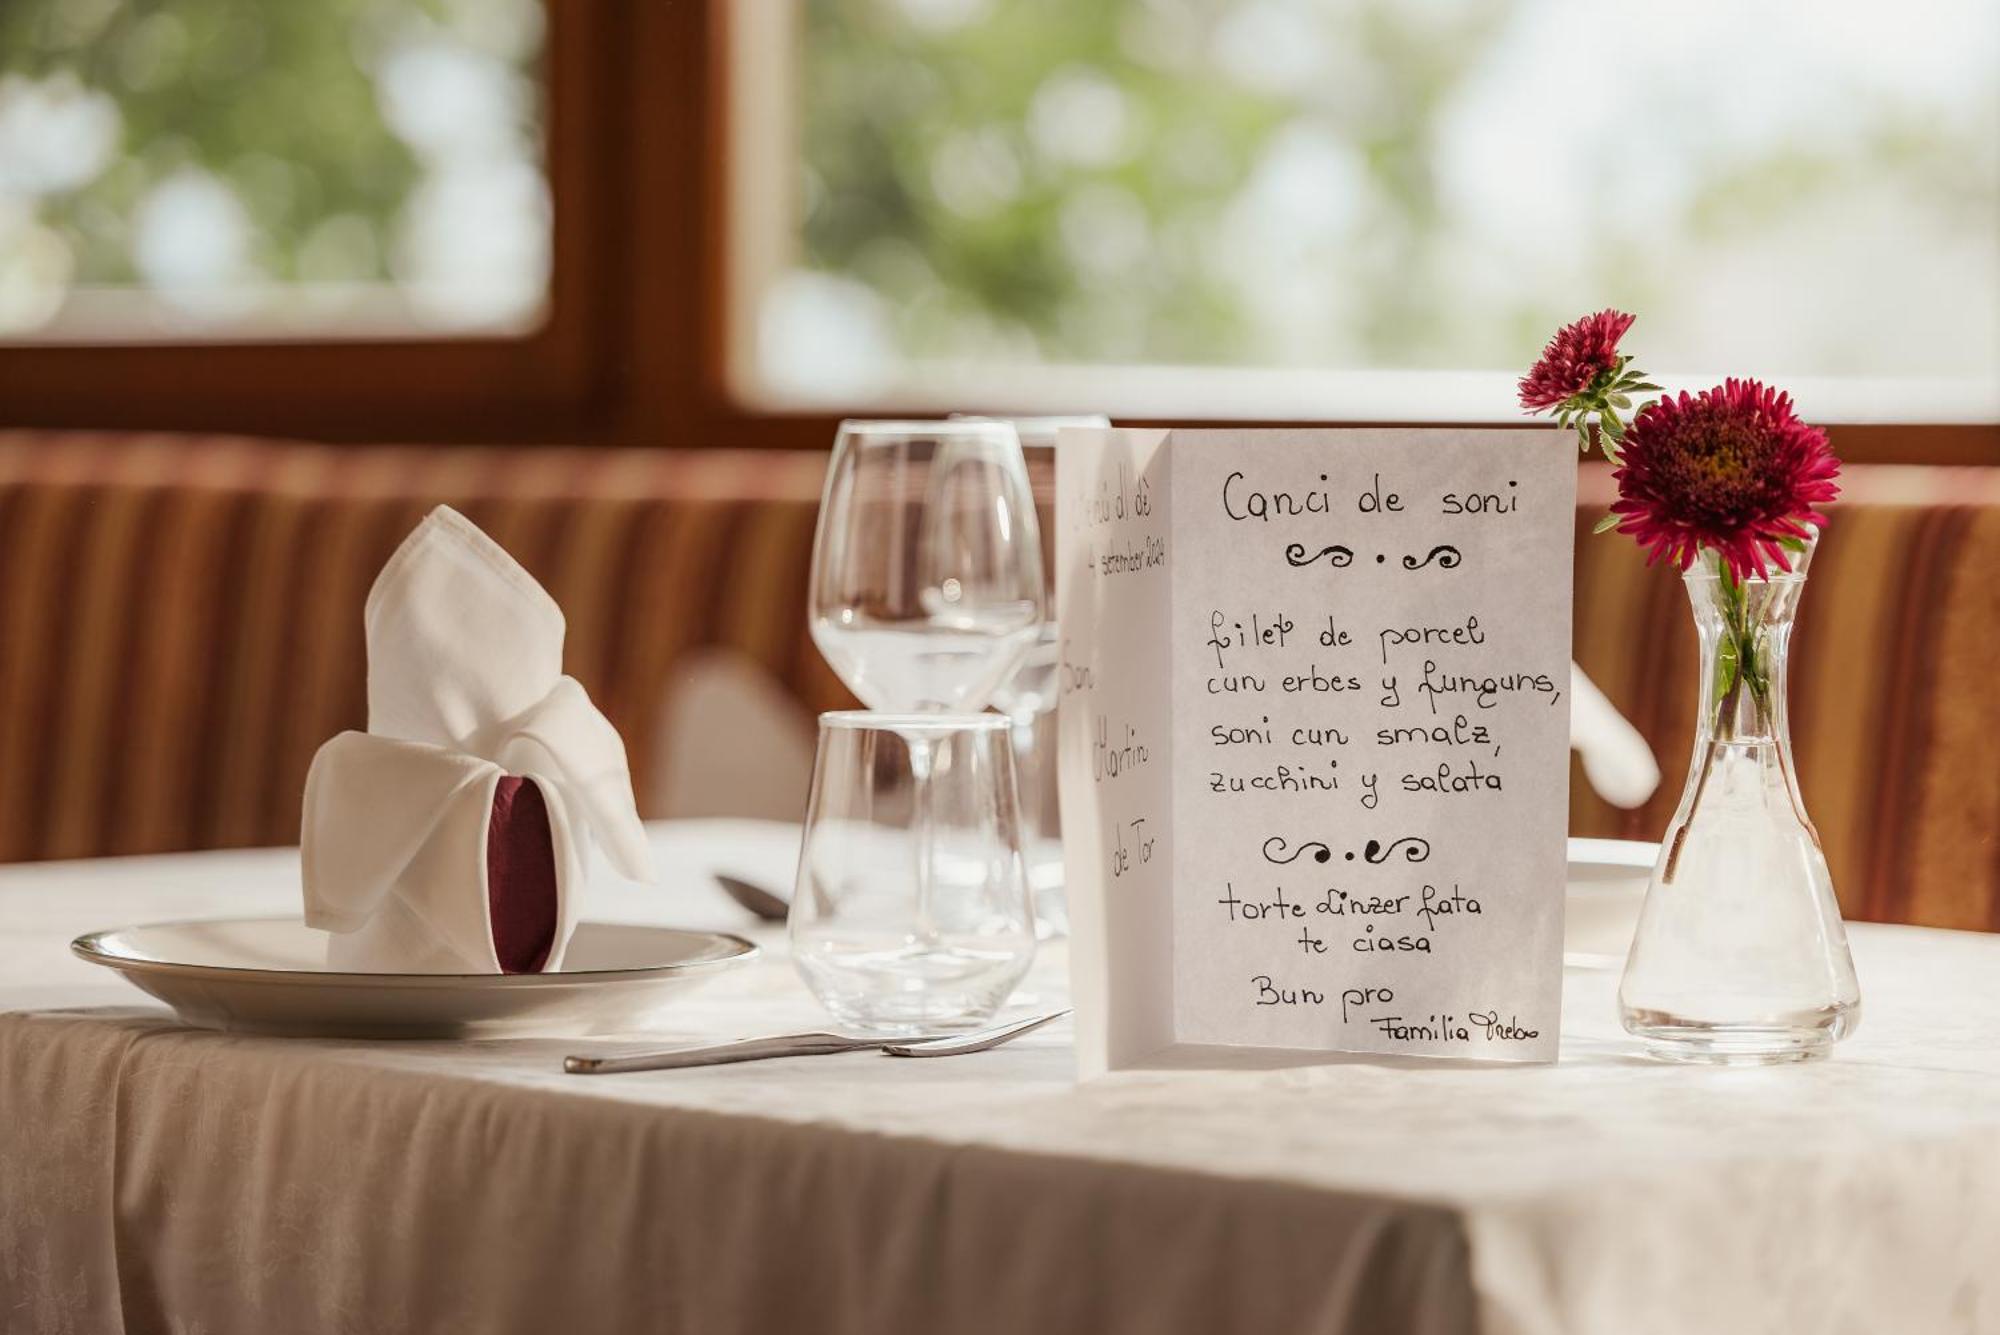 Menü dl dè
4 setember 2024
San
Martin
de Tor
Canci de soni
filet de porcel
cun erbes y funguns,
soni cun smalz,
zucchini y salata
torte Linzer fata
te ciasa
Bun pro
Familia